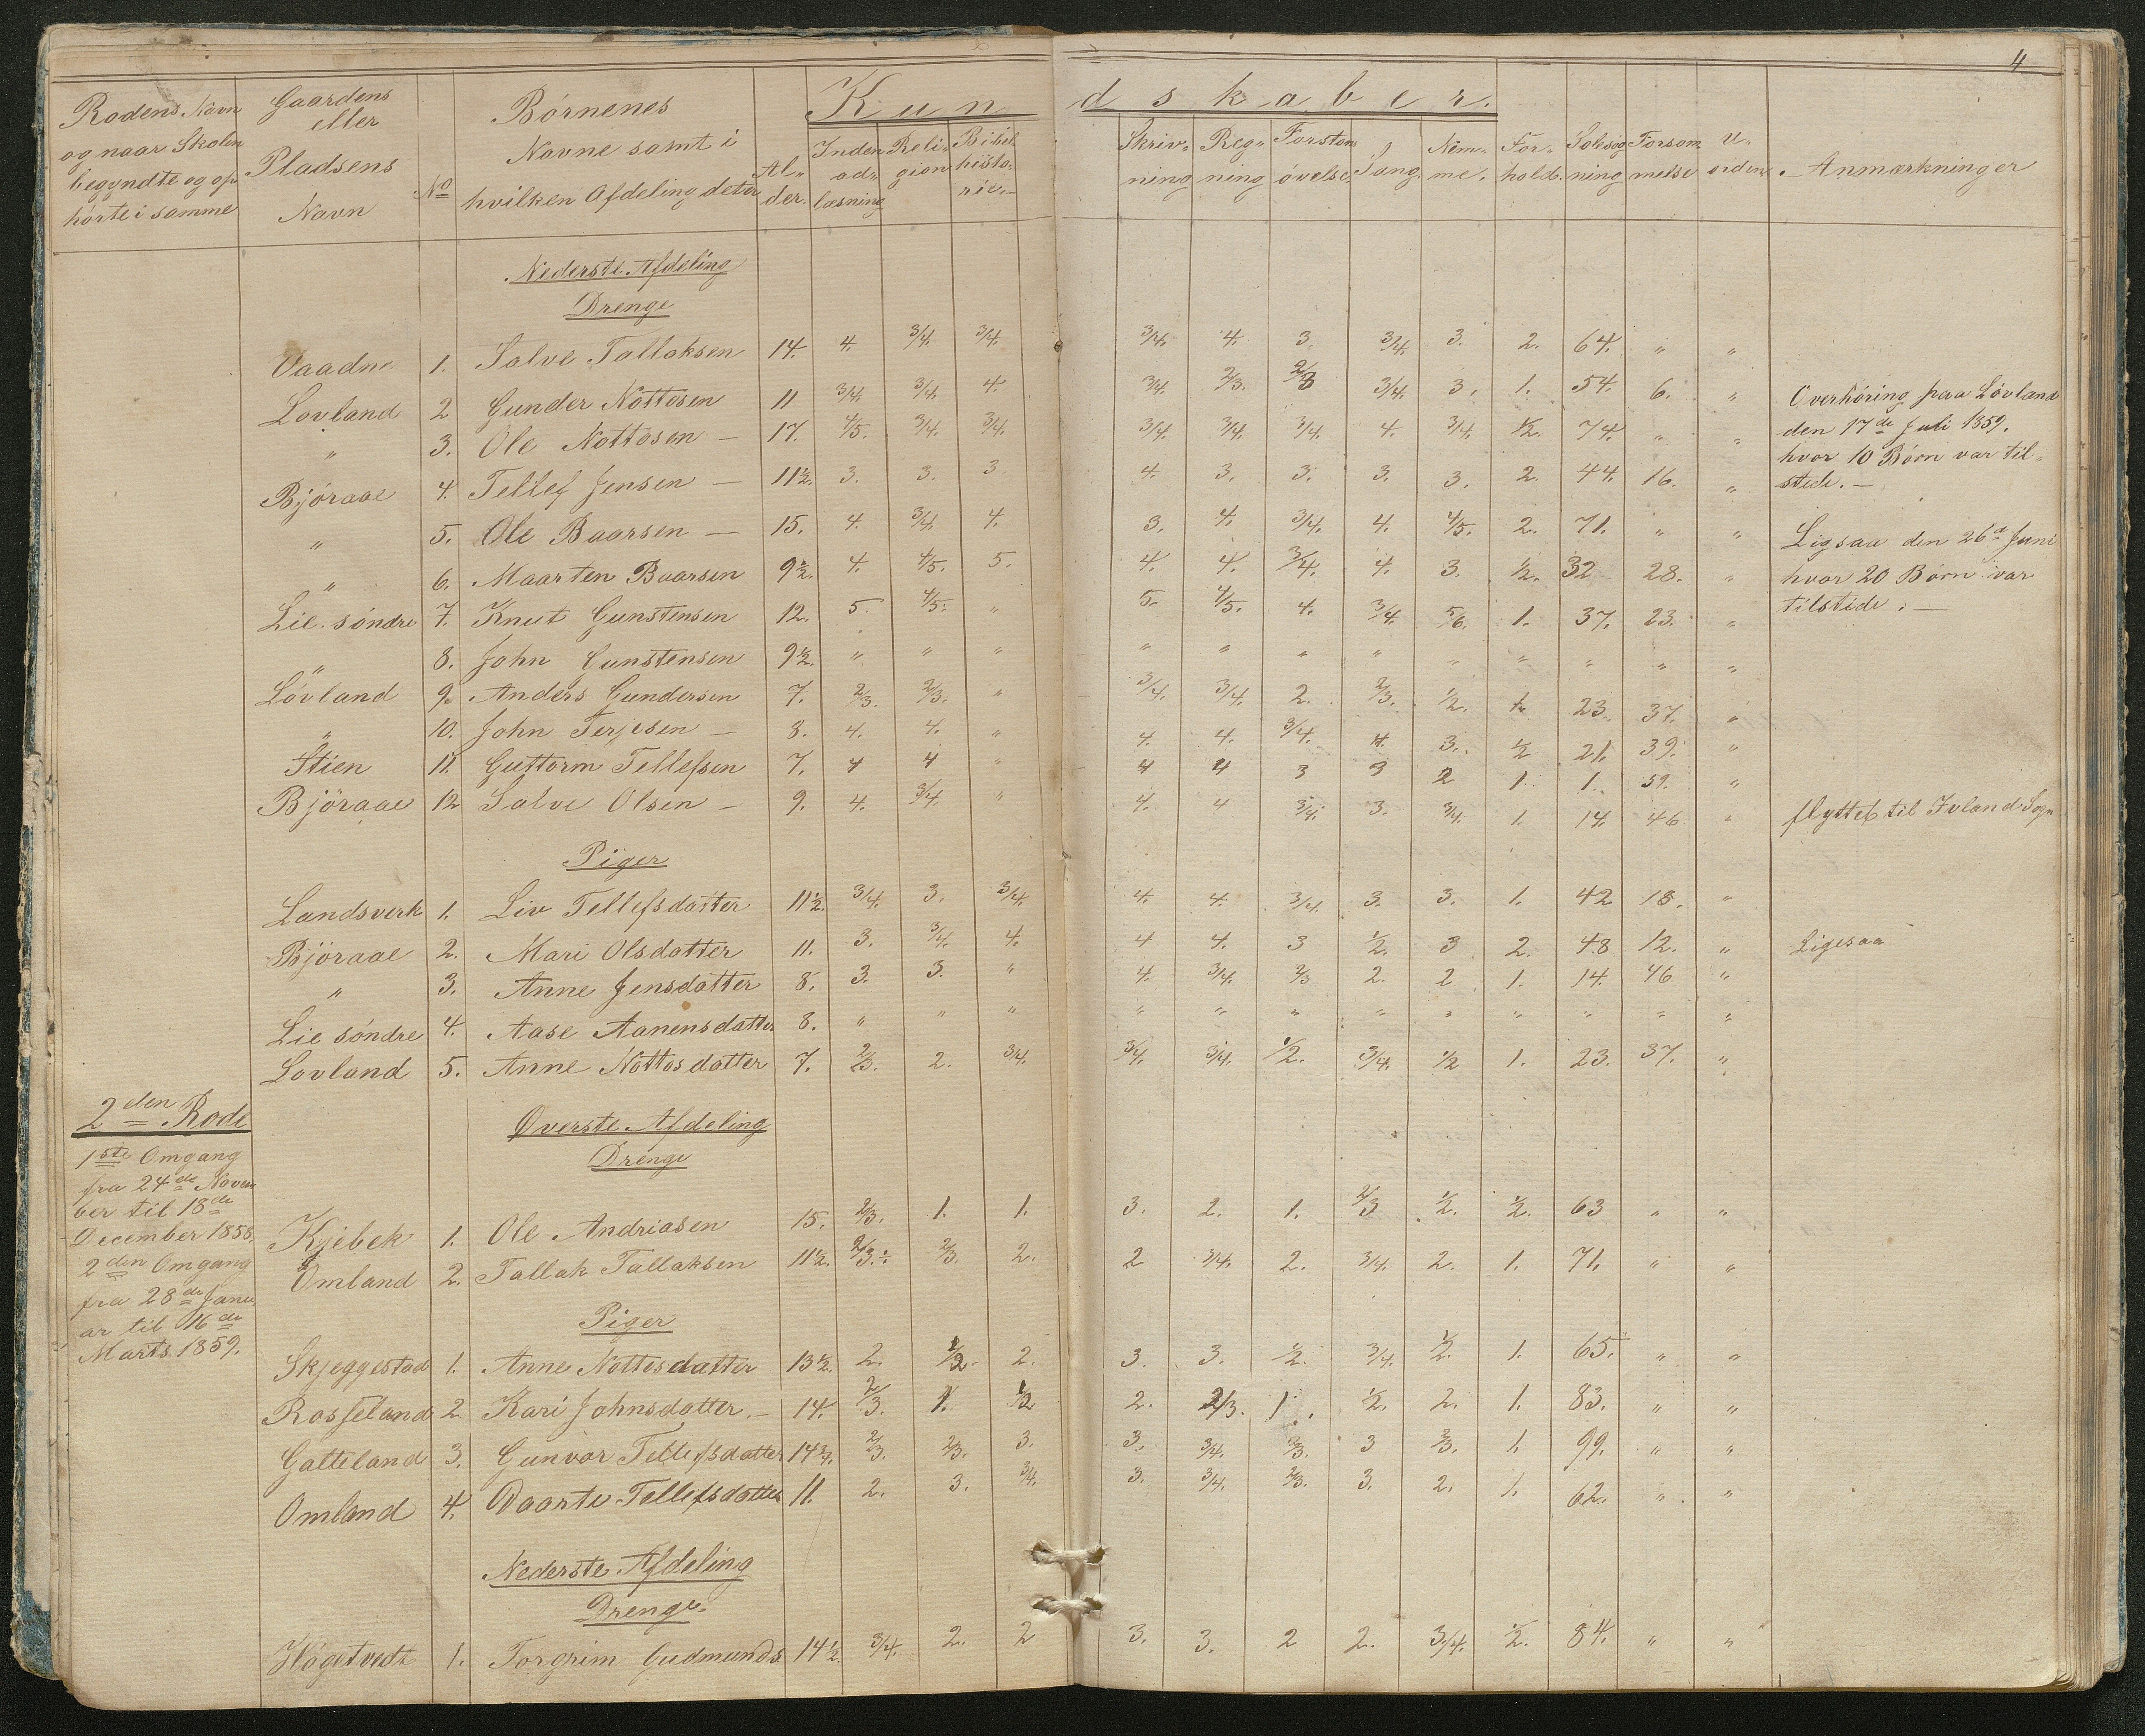 4
Rodens Navn og naar Skolen begyndte og op hörte i samme | Gaardens eller Pladsens Navn | No | Börnenes Navne samt i hvilken Afdeling deter | Al- der. | Kundskaber. | Inden ad- læsning | Reli- gion | Bibel histo- rie. | Skriv- ning | Reg- ning | Forstan övelse | Sang. | Nem- me. | For- hold. | Solsög ning | Forsöm melse | U- orden. | Anmærkninger
Nederste Afdeling
Drenge
Vaadne 1. Salve Tallaksen 14. 4. 3/4. 3/4. 3/4. 4. 3. 3/4. 3. 2. 64. " "
Lovland 2 Gunder Nottosen 11 3/4. 3/4. 4. 3/4. 2/3. 2/3 3/4. 3. 1. 54. 6. "
" 3. Ole Nottosen – 17. 4/5. 3/4. 3/4. 3/4. 3/4. 3/4. 4. 3/4. 1/2. 74. " "
Overhöring paa Lövland
den 17de Juli 1859.
hvor 10 Börn var til-
stede. –
Björaae 4. Tellef Jensen – 11 1/2. 3. 3. 3. 4. 3. 3. 3. 3. 2. 44. 16. "
" 5. Ole Baarsen – 15. 4. 3/4. 4. 3. 4. 3/4. 4. 4/5. 2. 71. " "
" 6. Maarten Baarsen 9 1/2. 4. 4/5. 5. 4. 4. 3/4. 4. 3. 1/2. 32 28. "
Ligsaa den 26de Juni
hvor 20 Börn var
tilstede. –
Lie söndre 7. Knut Gunstensen 12. 5. 4/5. " 5. 4/5. 4. 3/4. 5/6. 1. 37. 23. "
" 8. John Gunstensen 9 1/2. " " " " " " " " " " " "
Lövland 9. Anders Gundersen 7. 2/3. 2/3. " 3/4. 3/4. 2. 2/3. 1/2. 1. 23. 37. "
" 10. John Terjesen – 8. 4. 4. " 4. 4. 3/4. 4. 3. 1/2 21. 39. "
Stien 11. Guttorm Tellefsen 7. 4 4 " 4 4 3 3 2 1. 1. 59. "
Björaae 12 Salve Olsen – 9. 4. 3/4. " 4. 4 3/4. 3. 3/4. 1. 14. 46 " flyttet til Ivland Sogn
Piger
Landsverk 1. Liv Tellefsdatter 11 1/2. 3/4. 3. 3/4. 4. 4. 3/4. 3. 3. 1. 42 18. "
Björaae 2. Mari Olsdatter 11. 3. 3/4. 4. 4 4. 3 1/2. 3 2. 48 12. " Ligesaa
" 3. Anne Jensdatter 8. 3. 3. " 4. 3/4. 2/3 2. 2 1. 14. 46 "
Lie söndre 4. Aase Aanensdatter 8. " " " " " " " " " " " "
Lovland 5. Anne Nottosdatter 7. 2/3. 2. 3/4. 3/4. 3/4. 1/2. 3/4. 1/2 1. 23. 37. "
2den Rode
Överste Afdeling
Drenge
1ste Omgang
fra 24de Novem
ber til 18de
December 1858.
2den Omgang
fra 28de Janu
ar til 16de
Marts 1859.
Kjebek 1. Ole Andriasen 15. 2/3. 1. 1. 3. 2. 1. 2/3 1/2. 1/2. 63 " "
Omland 2. Tallak Tallaksen 11 1/2. 2/3. 2/3. 2. 2 3/4. 2. 3/4. 2. 1. 71. " "
Piger
Skjeggestad 1. Anne Nottosdatter 13 1/2. 2. 1/2. 2. 3. 3. 1/2. 3/4. 1/2. 1. 65. " "
Rosseland 2. Kari Johnsdatter. – 14. 2/3. 1. 1/2 2. 2/3. 1. 1/2. 2. 1. 83. " "
Gatteland 3. Gunvor Tellefsdatter 14 3/4. 2/3. 2/3. 3. 3. 3/4. 2/3. 3 2/3. 1. 99. " "
Omland 4. Daarte Tellefsdatter 11. 2. 3. 3/4. 3. 3/4. 2/3. 3. 2. 1. 62. " "
Nederste Afdeling
Drenge.
Högetvedt 1. Torgrim Gudmunds. 14 1/2. 3/4. 2. 2 3. 3. 2 2. 3/4. 1/2. 84. " "